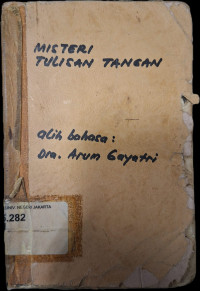 MISTERI
TULISAN TANGAN
alih bahasa:
Dra. Arum Gayatri
NEGERI JAKARTA
.282